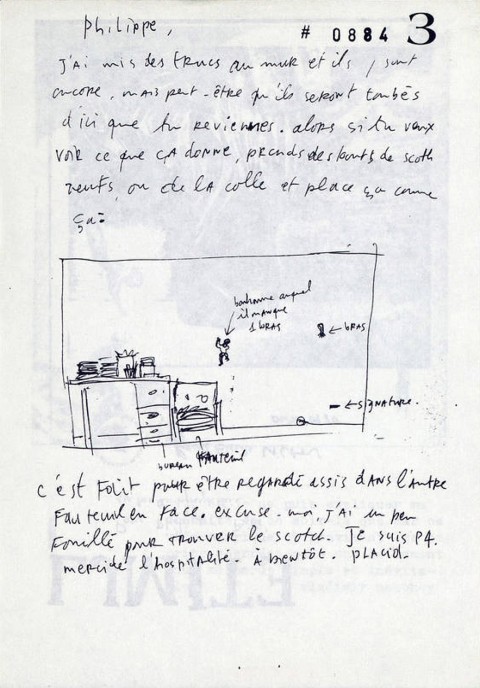 Philippe,
# 0884 3
J'ai mis des trucs au mur et ils y sont
encore, mais peut-être qu'ils seront tombés
d'ici que tu reviennes. alors si tu veux
voir ce que ça donne, prends des bouts de scoth
neufs, ou de la colle et place ça comme
ça:
bonhomme auquel
il manque
1 bras
← bras
← signature.
bureau fauteuil
c'est foiit pour être regardé assis dans l'autre
fauteuil en face. excuse-moi, j'ai un peu
fouillé pour trouver le scotch. Je suis P4.
merci de l'hospitalité. à bientôt. placid.